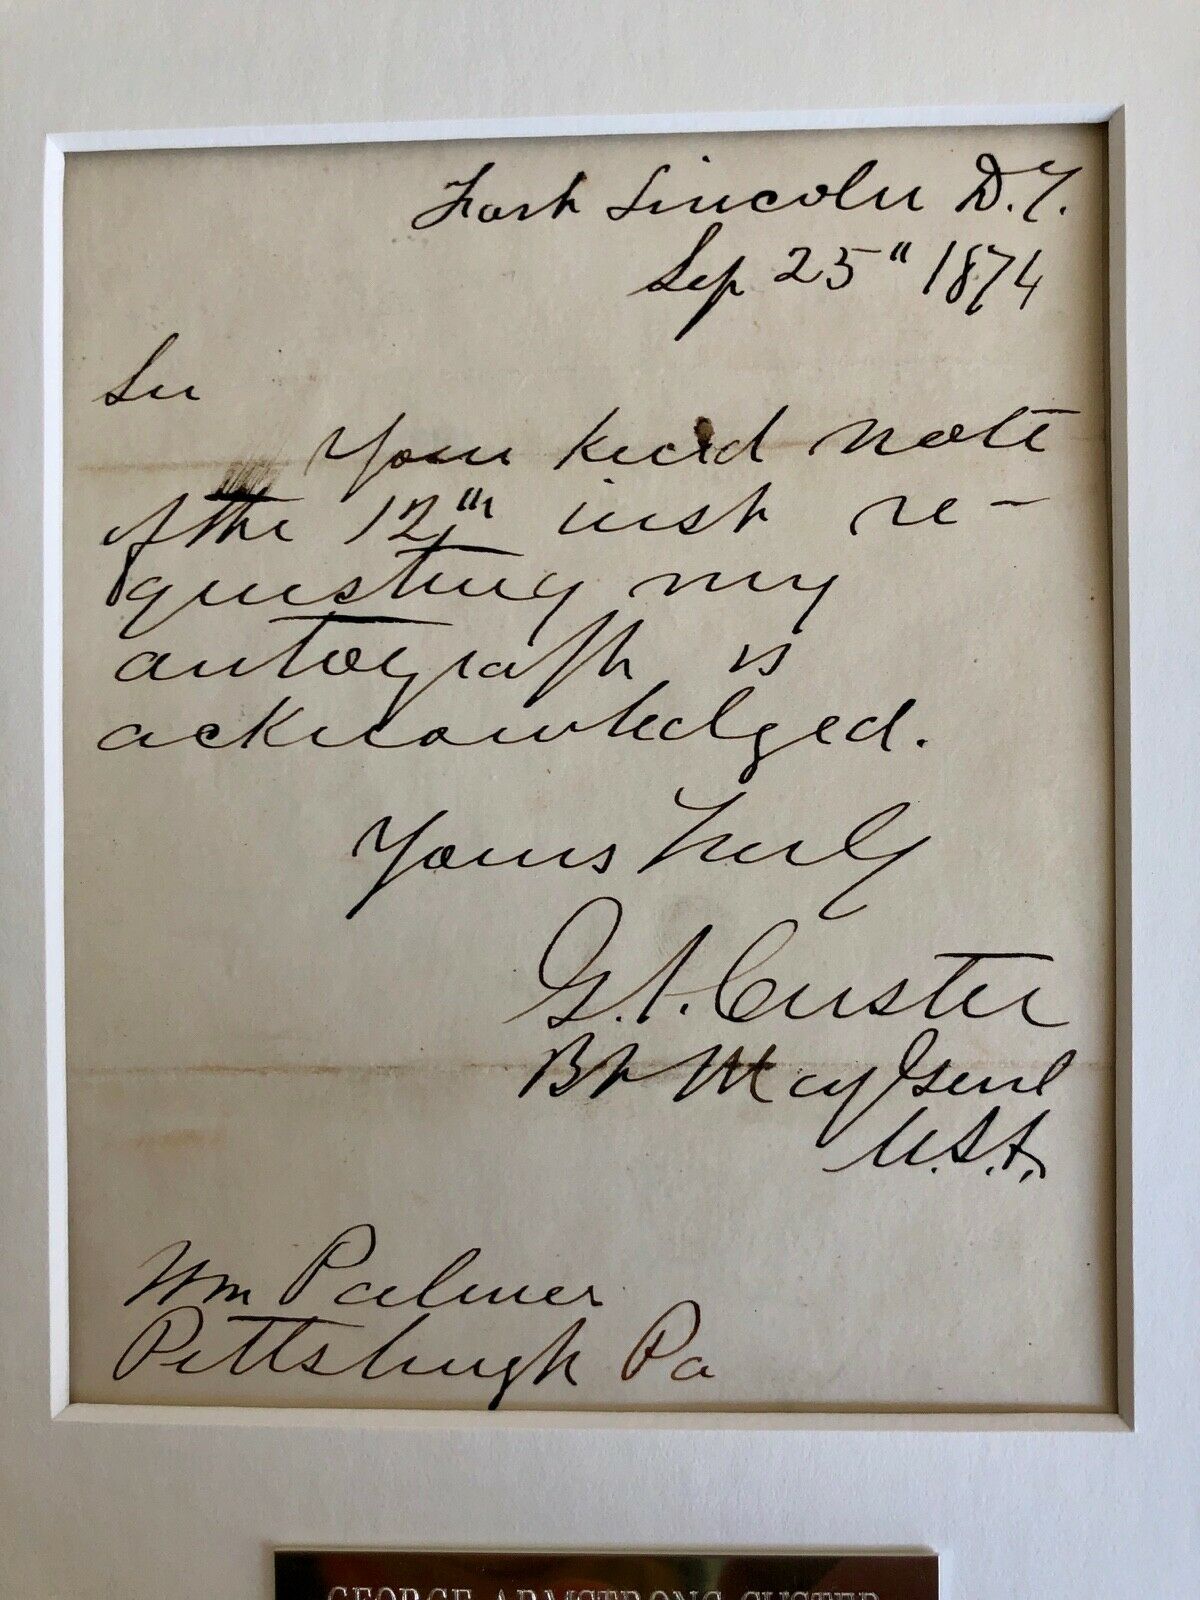 Fort Lincoln D.T.
Sep 25" 1874
Sir
Your kind note
of the 12th inst re-
questing my
autograph is
acknowledged.
Yours truly
G.A. Custer
Bt Maj Genl
U.S.A.
Wm Palmer
Pittsburgh Pa
GEORGE ARMSTRONG CUSTER